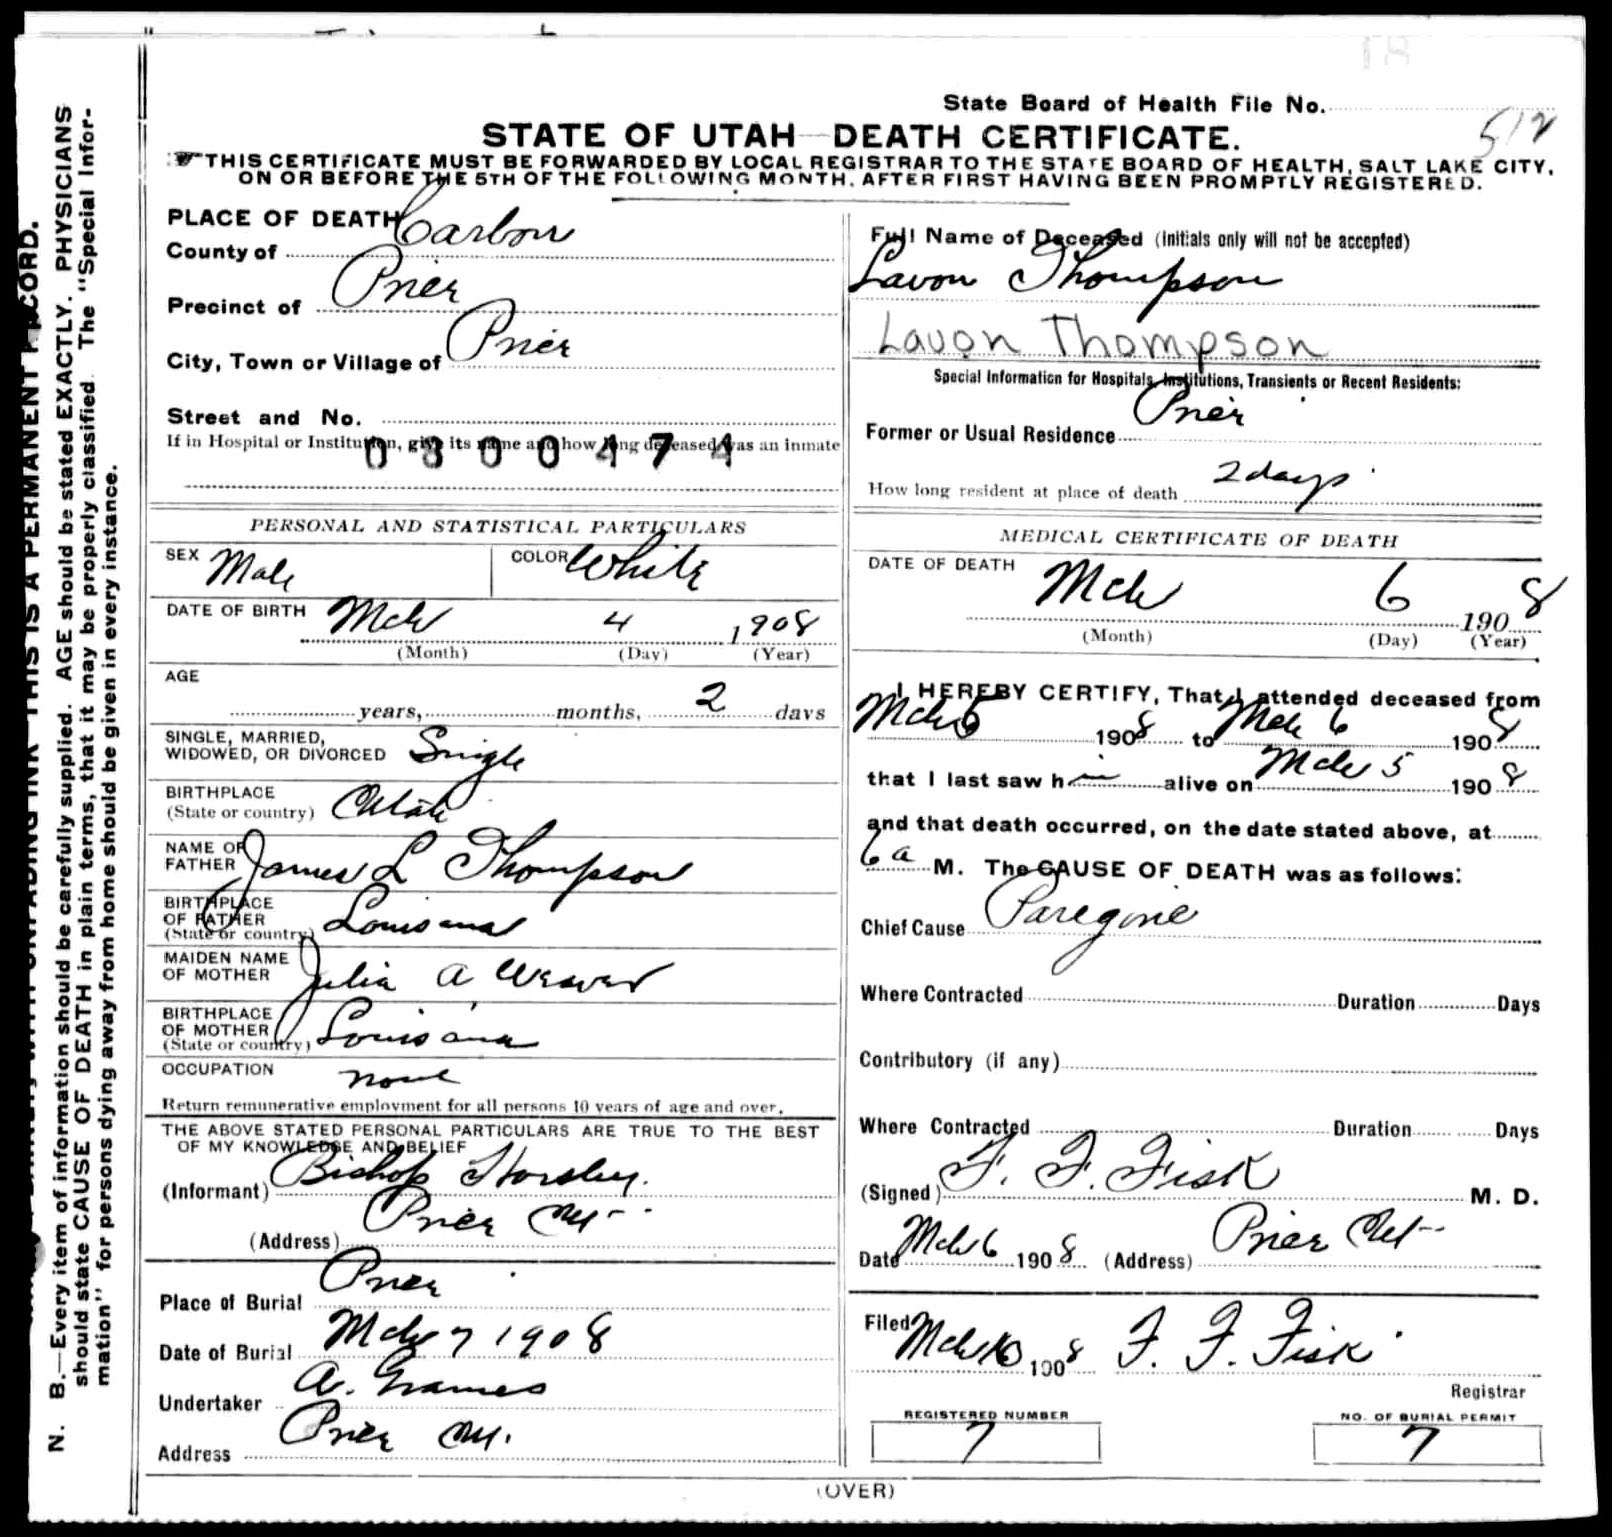 State Board of Health File No.
512
STATE OF UTAH—DEATH CERTIFICATE.
THIS CERTIFICATE MUST BE FORWARDED BY LOCAL REGISTRAR TO THE STATE BOARD OF HEALTH, SALT LAKE CITY,
ON OR BEFORE THE 5TH OF THE FOLLOWING MONTH, AFTER FIRST HAVING BEEN PROMPTLY REGISTERED.
PLACE OF DEATH
County of Carbon
Precinct of Price
City, Town or Village of Price
Street and No.
If in Hospital or Institution, give its name and how long deceased was an inmate
0300474
PERSONAL AND STATISTICAL PARTICULARS
SEX Male COLOR White
DATE OF BIRTH Mch 4 1908
(Month) (Day) (Year)
AGE
years, months, 2 days
SINGLE, MARRIED,
WIDOWED, OR DIVORCED Single
BIRTHPLACE
(State or country) Utah
NAME OF
FATHER James L Thompson
BIRTHPLACE
OF FATHER
(State or country) Louisiana
MAIDEN NAME
OF MOTHER Julia A Weaver
BIRTHPLACE
OF MOTHER
(State or country) Louisiana
OCCUPATION none
Return remunerative employment for all persons 10 years of age and over.
THE ABOVE STATED PERSONAL PARTICULARS ARE TRUE TO THE BEST
OF MY KNOWLEDGE AND BELIEF
(Informant) Bishop Horsley.
(Address) Price Ut
Place of Burial Price
Date of Burial Mch 7 1908
Undertaker A. Grames
Address Price Ut.
Full Name of Deceased (initials only will not be accepted)
Lavon Thompson
Lavon Thompson
Special Information for Hospitals, Institutions, Transients or Recent Residents:
Former or Usual Residence Price
How long resident at place of death 2 days
MEDICAL CERTIFICATE OF DEATH
DATE OF DEATH
Mch 6 1908
(Month) (Day) (Year)
I HEREBY CERTIFY, That I attended deceased from
Mch 5 1908 to Mch 6 1908
that I last saw him alive on Mch 5 1908
and that death occurred, on the date stated above, at
6 a M. The CAUSE OF DEATH was as follows:
Chief Cause Paregoric
Where Contracted Duration Days
Contributory (if any)
Where Contracted Duration Days
(Signed) F. F. Fisk M. D.
Date Mch 6 1908 (Address) Price Ut
Filed
Mch 10 1908 F. F. Fisk
Registrar
REGISTERED NUMBER
7
NO. OF BURIAL PERMIT
7
(OVER)
THIS IS A PERMANENT RECORD.
N. B.—Every item of information should be carefully supplied. AGE should be stated EXACTLY. PHYSICIANS
should state CAUSE OF DEATH in plain terms, that it may be properly classified. The "Special Infor-
mation" for persons dying away from home should be given in every instance.